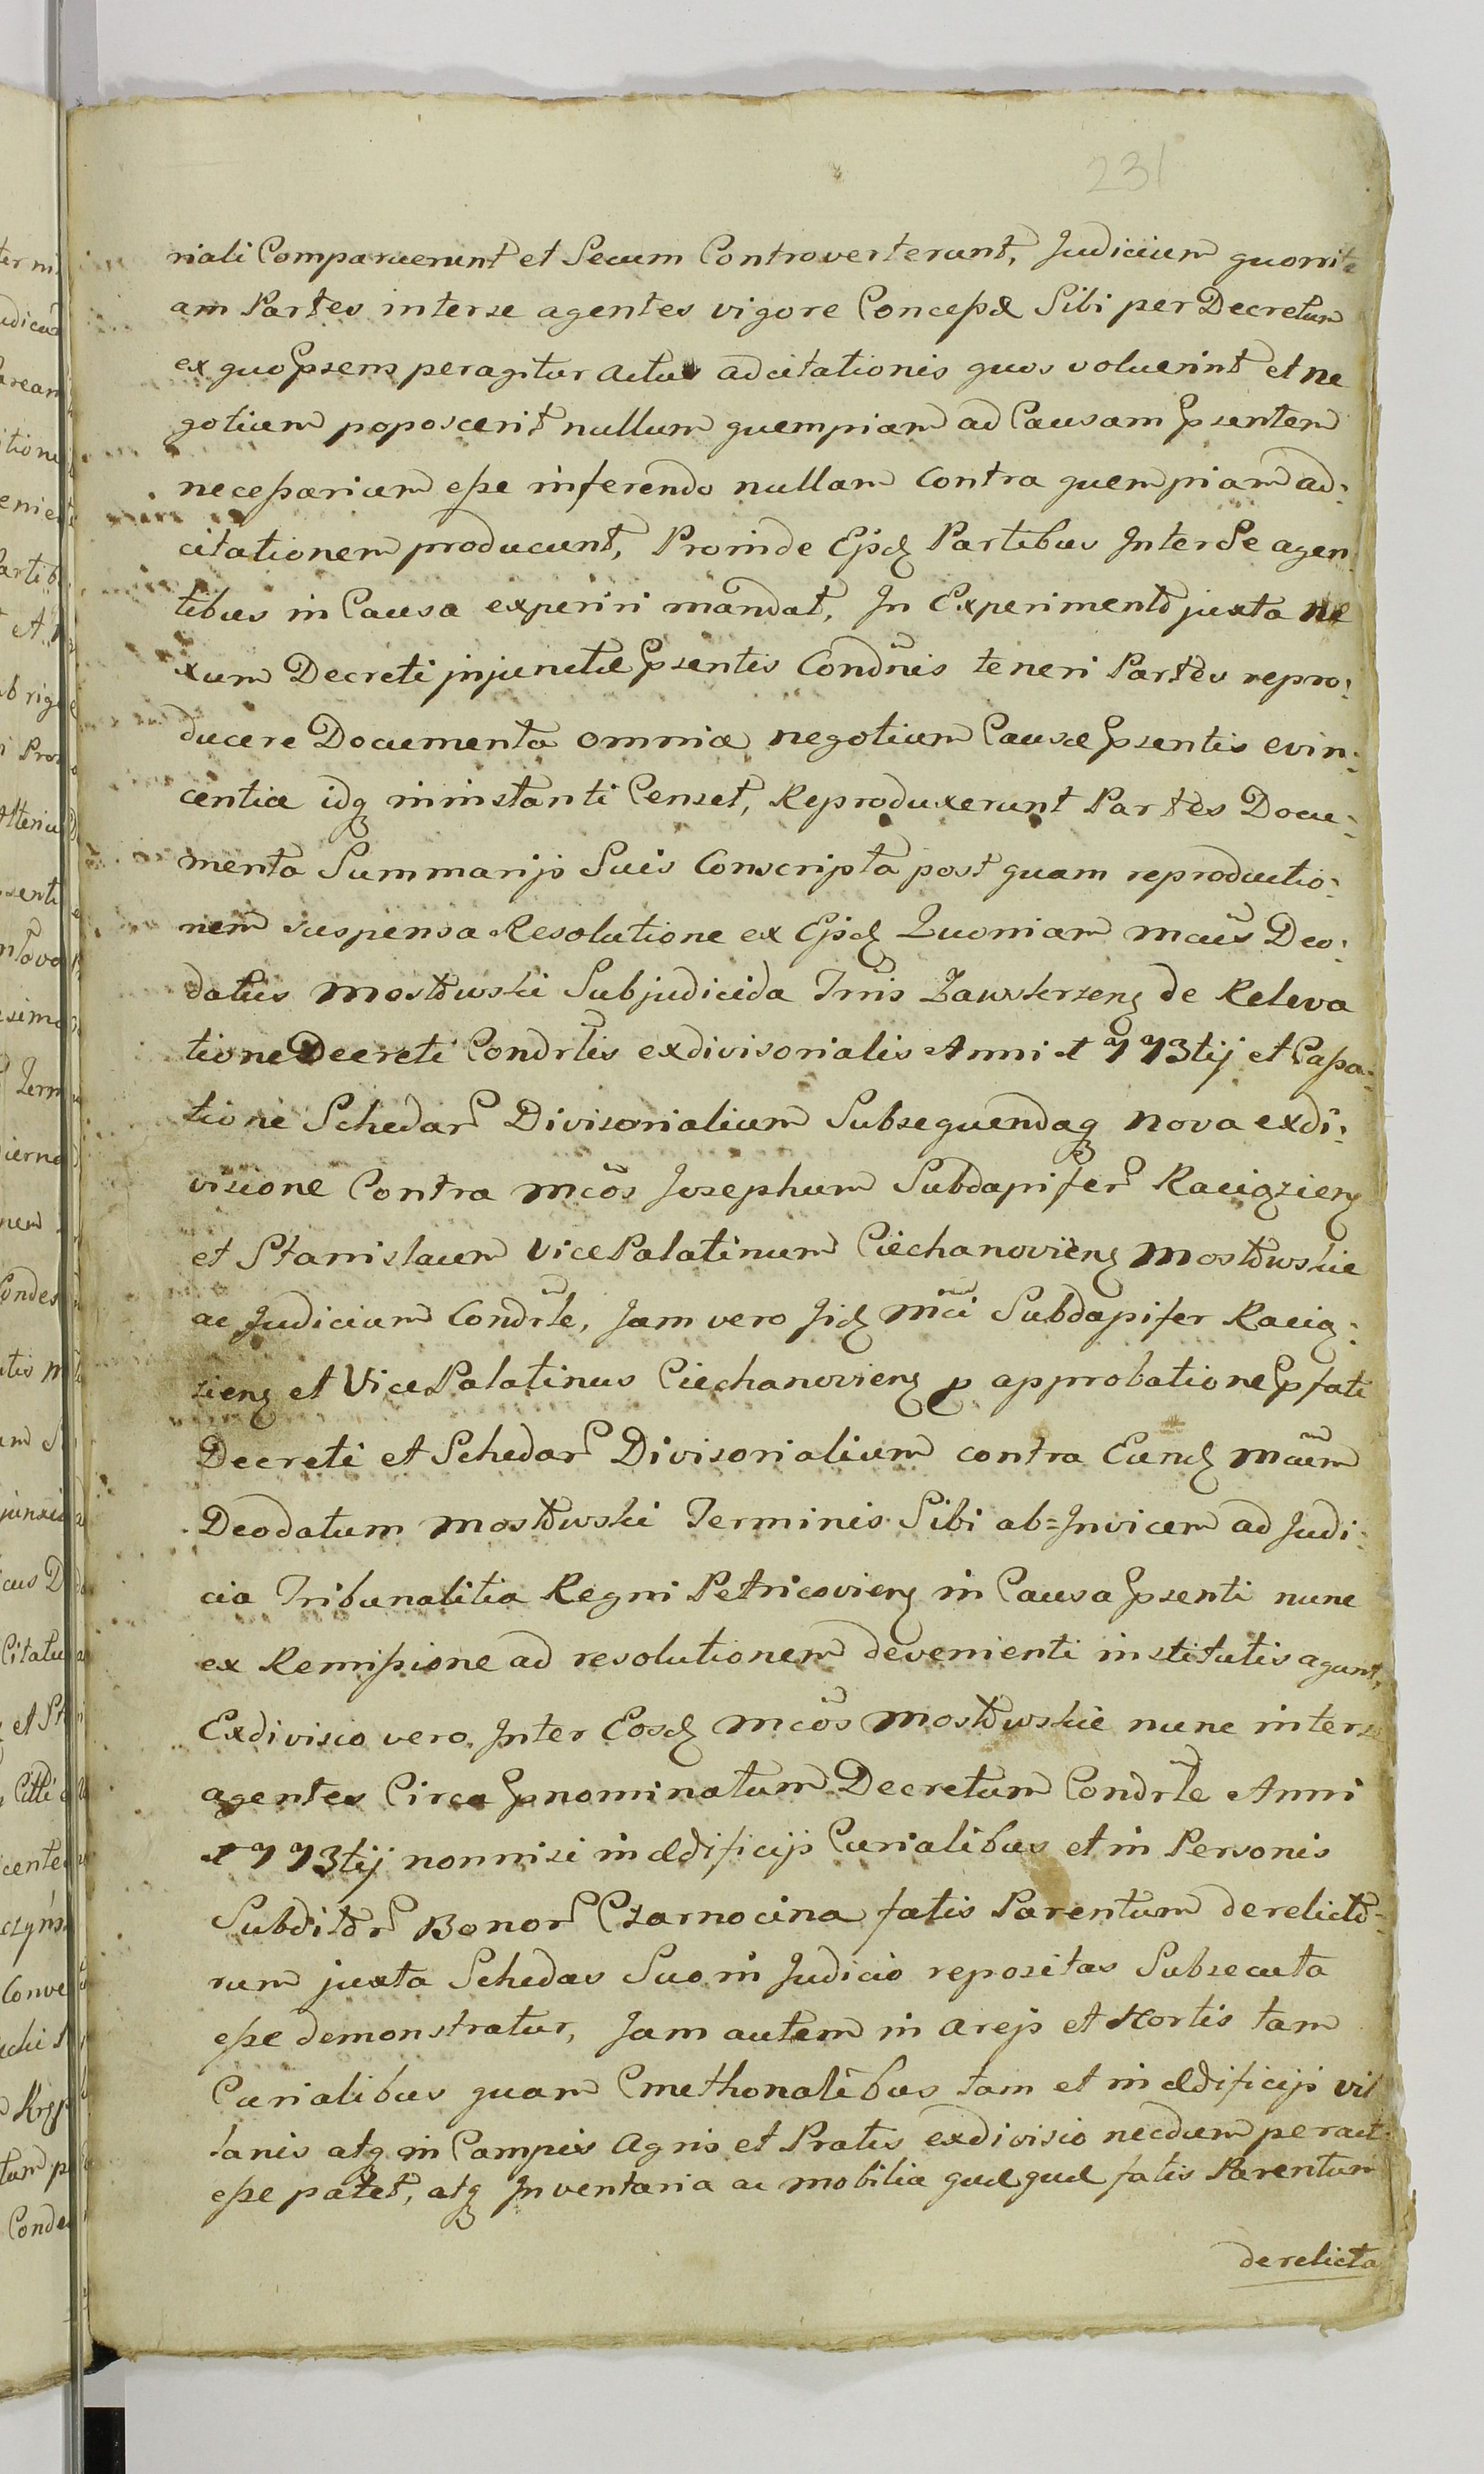 231
riali Comparuerunt et Secum Controverterunt, Judicium quonit
am Partes interse agentes vigore Concessæ Sibi per Decretum
ex quo Psens peragitur actus adcitationis quos voluerint et ne
gotium poposcerit nullum quempiam ad Causam Psentem
necessarium esse inferendo nullam Contra quempiam ad:
citationem producunt, Proinde Ejsd Partibus Inter Se agen
tibus in Causa experiri mandat, In Experimento juxta ne
xum Decreti injunctæ Psentis Condnis teneri Partes repro:
ducere Documenta omnia negotium Causæ Psentis evin:
centia idq in instanti Censet, Reproduxerunt Partes Docu:
menta Summarijs Suis Conscripta post quam reproductio:
nem suspensa Resolutione ex Ejsd Quoniam Mcus Deo:
datus Mostowski Subjudicida Trris Zawskrzens de Releva
tione Decreti Condrlis exdivisorialis Anni 1773tij et Cassa:
tione Schedar Divisorialium Subsequendaq nova exdi:
visione Contra Mcos Josephum Subdapifer Raciąziens
et Stanislaum Vice Palatinum Ciechanoviens Mostowskie
ac Judicium Condrle, Jam vero Jid Mci Subdapifer Racią:
ziens et Vice Palatinus Ciechanoviens p approbatione Pfati
Decreti et Schedar Divisorialium contra Eund Mcum
Deodatum Mostowski Terminis Sibi ab=Invicem ad Judi:
cia Tribunalitia Regni Petricoviens in Causa Psenti nunc
ex Remissione ad resolutionem devenienti institutis agunt,
Exdivisio vero Inter Eosd Mcos Mostowskie nunc inter se
agentes Circa Pnominatum Decretum Condrle Anni
1773tij nonnisi in Ædificijs Curialibus et in Personis
Subditor Bonor Czarnocina fatis Parentum derelicto-
rum juxta Schedas Suo in Judicio repositas Subsecuta
esse demonstratur, Jam autem in areis et Hortis tam
Curialibus quam Cmethonalibus tam et in Ædificijs vil
lanis atq in Campis Agris et Pratis exdivisio necdum peract
esse patet, atq Inventaria ac mobilia quæquæ fatis Parentum
derelicta